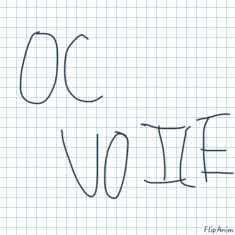 OC
VOICE
FlipAnim